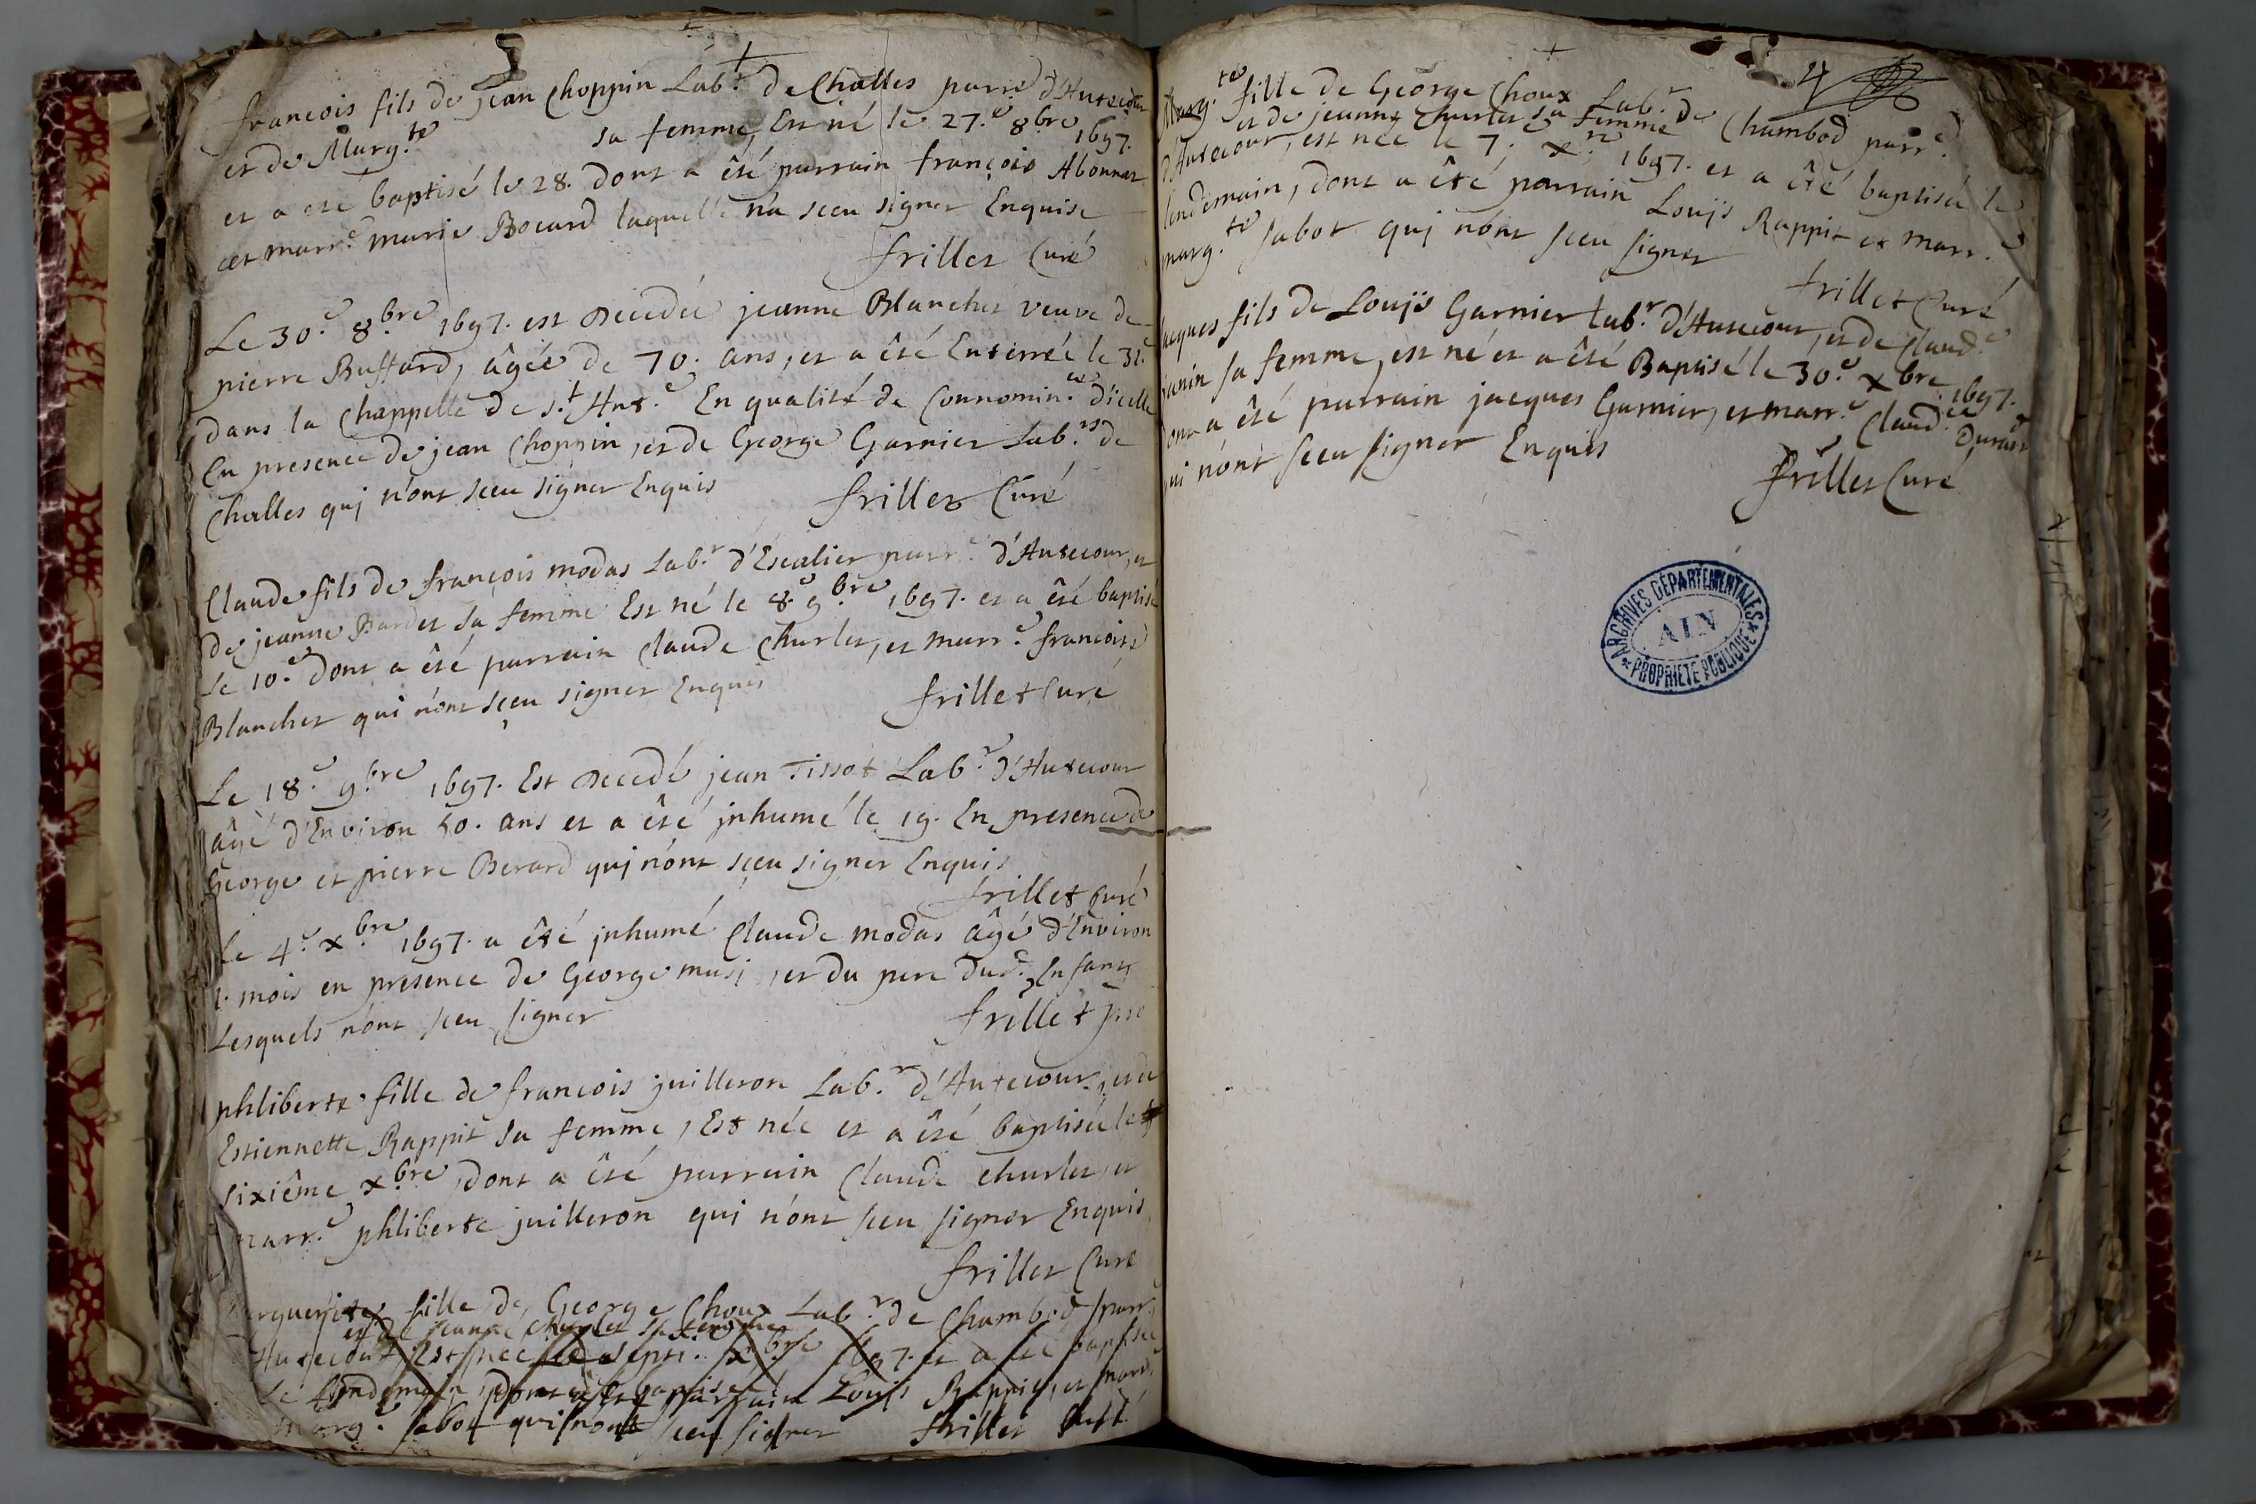 françois fils de jean Choppin Lab.r de Challes parr.e d'Autecour
et de Marg.te sa femme, Est né le 27.e 8.bre 1697.
et a eté baptisé le 28. dont a êté parrain françois Abonnat
et marr.e marie Bocard laquelle n'a sceu signer Enquise
frillet Curé
Le 30.e 8.bre 1697. est decedée jeanne Blanchet veuve de
pierre Buffard, âgée de 70. ans, et a êté Enterrée le 31.e
dans la Chappelle de s.t Ant.e En qualité de Connomin.ée d'icelle
En presence de jean Choppin, et de George Garnier Lab.rs de
Challes qui n'ont sceu signer Enquis
frillet Curé
Claude fils de françois modas Lab.r d'Escalier parr.e d'Autecour, et
de jeanne Bardet sa femme Est né le 8.e 9.bre 1697. et a êté baptisé
le 10.e dont a êté parrain Claude Charlet, et marr.e françoise
Blanchet qui n'ont sçeu signer Enquis
frillet Curé
Le 18.e 9.bre 1697. Est decedé jean Tissot Lab.r d'Autecour
âgé d'Environ 50. ans et a êté jnhumé le 19. En presence de
George et pierre Berard qui n'ont sçeu signer Enquis
frillet Curé
Le 4.e x.bre 1697. a êté jnhumé Claude modas âgé d'Environ
1. mois en presence de George musi, et du pere dud. Enfant
Lesquels n'ont sceu signer
frillet
phliberte fille de françois juilleron Lab.r d'Autecour, et d'
Estiennette Rappit sa femme, Est née et a êté baptisée le
sixiême x.bre, dont a êté parrain Claude Charlet, et
marr.e phliberte juilleron qui n'ont sceu signer Enquis
frillet Curé
Marguerite fille de George Choux Lab.r de Chambod parr.e
et de jeanne Charlet sa femme
d'Autecour Est née le sept. x.bre 1697. et a eté baptisée
Le lendemain, dont a été parrain Louis Rappit, et marr.e
Marg.e sabot qui n'ont sceu signer frillet Curé
4
Marg.te fille de George Choux Lab.r de Chambod parr.e
et de jeanne Charlet sa femme
d'Autecour, est née le 7. x.re 1697. et a êté baptisée le
lendemain, dont a êté parrain Loujs Rappit et marr.e
marg.te sabot qui n'ont sceu signer
frillet Curé
jacques fils de Loujs Garnier Lab.r d'Autecour, et de Claud.e
janin sa femme, est né et a êté Baptisé le 30.e x.bre 1697.
dont a êté parrain jacques Garnier, et marr.e Claud.e Durand
qui n'ont sceu signer Enquis
frillet Curé
ARCHIVES DÉPARTEMENTALES
AIN
PROPRIÉTÉ PUBLIQUE